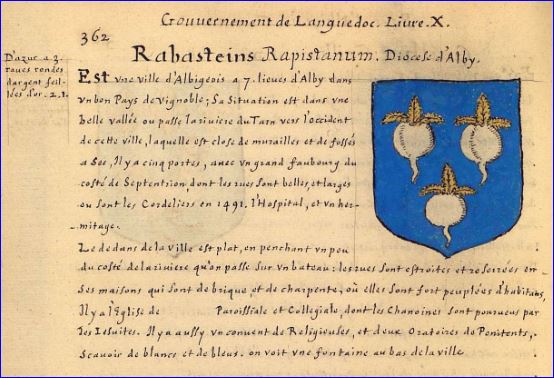 Gouvernement de Languedoc. Liure. X.
362
Rabasteins Rapistanum. Diocese d'Alby.
D'azur a 3.
raues rondes
dargent feil-
lées d'or. 2.1.
Est vne ville d'Albigeois a 7. lieues d'Alby dans
vn bon Pays de Vignoble; Sa Situation est dans vne
belle vallée ou passe la riuiere du Tarn vers l'occident
de cette ville, laquelle est close de murailles et de fossés
a Sec, Il y a cinq portes, auec vn grand fauxbourg du
costé de Septentrion dont les rues sont belles, et larges
ou sont les Cordeliers en 1491. l'Hospital, et vn her-
mitage.
Le dedans de la ville est plat, en penchant vn peu
du costé de la riuiere qu'on passe sur vn bateau: les rues sont estroites et reserrées en-
Ses maisons qui sont de brique et de charpente, où elles sont fort peuplées d'habitans,
Il y a l'Eglise de Paroissiale et Collegiale, dont les Chanoines sont pourueus par
des Iesuites. Il y a aussy vn conuent de Religieuses, et deux Oratoires de Penitents,
Scauoir de blancs et de bleus. on voit vne fontaine au bas de la ville